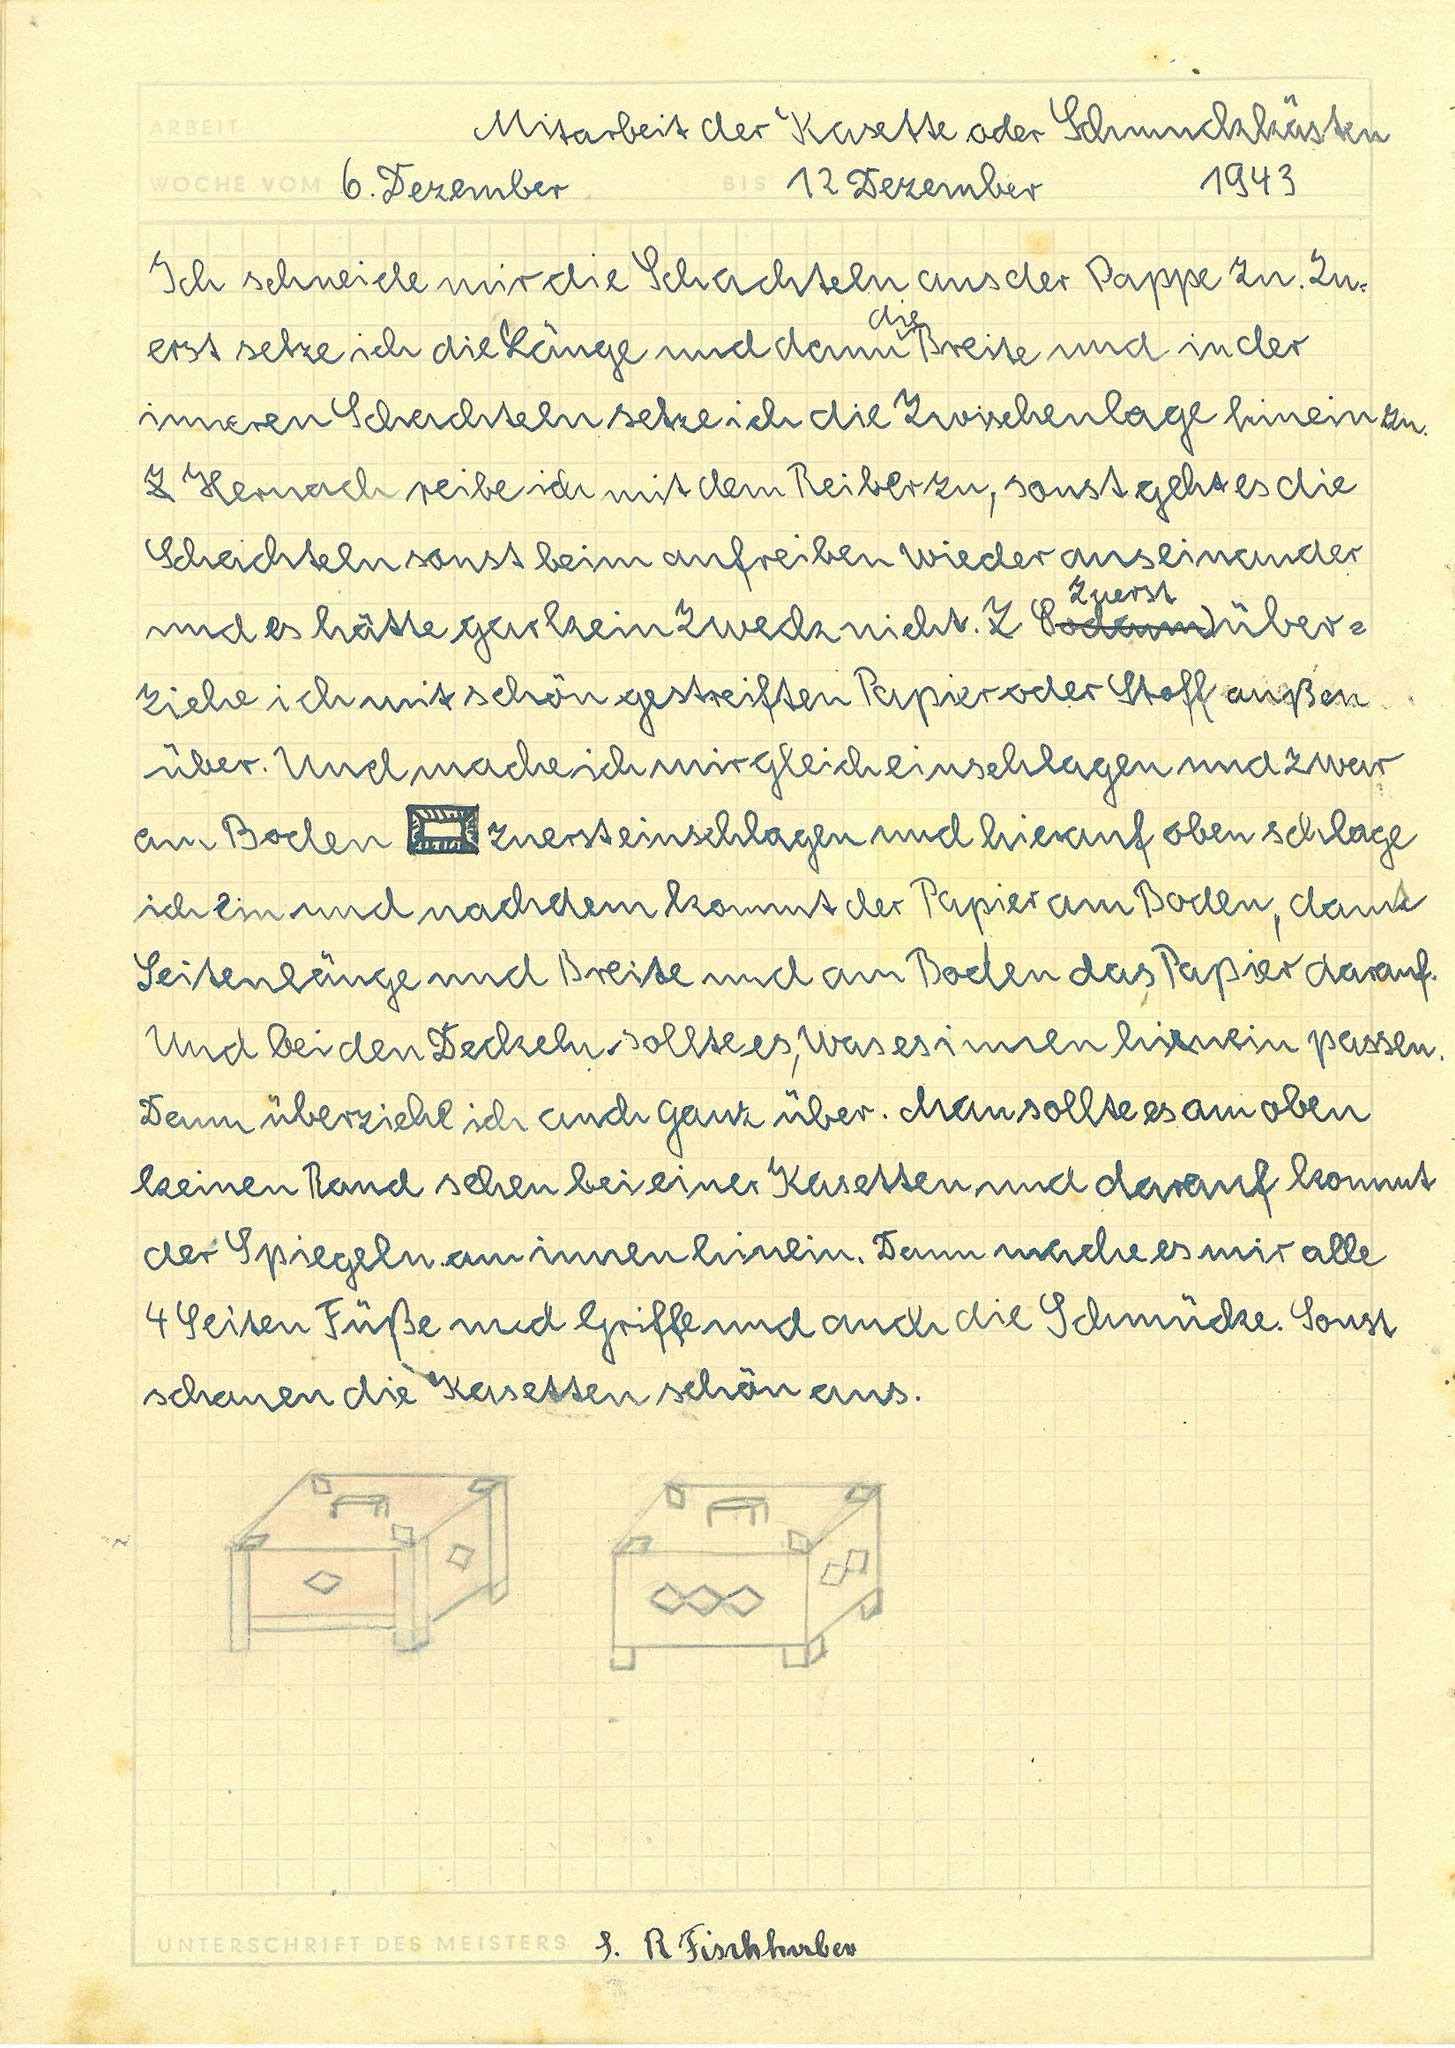 ARBEIT Mitarbeit der Kasette oder Schmuckkästen
WOCHE VOM 6. Dezember BIS 12 Dezember 1943
Ich schneide mir die Schachteln aus der Pappe zu. Zu-
erst setze ich die Länge und dann die Breite und in der
inneren Schachteln setze ich die Zwischenlage hinein zu.
Z Hernach reibe ich mit dem Reiber zu, sonst geht es die
Schachteln sonst beim aufreiben wieder auseinander
und es hätte gar kein Zweck nicht. Z Sodann) Zuerst über=
ziehe ich mit schön gestreiften Papier oder Stoff außen
über. Und mache ich mir gleich einschlagen und zwar
am Boden zuerst einschlagen und hierauf oben schlage
ich ein und nachdem kommt der Papier am Boden, dank
Seitenlänge und Breite und am Boden das Papier darauf.
Und bei den Deckeln sollte es, was es innen hinein passen.
Dann überziehe ich auch ganz über. Man sollte es am oben
keinen Rand sehen bei einer Kasetten und darauf kommt
der Spiegeln am innen hinein. Dann mache es mir alle
4 Seiten Füße und Griffe und auch die Schmücke. Sonst
schauen die Kasetten schön aus.
UNTERSCHRIFT DES MEISTERS S. R Fischhuber